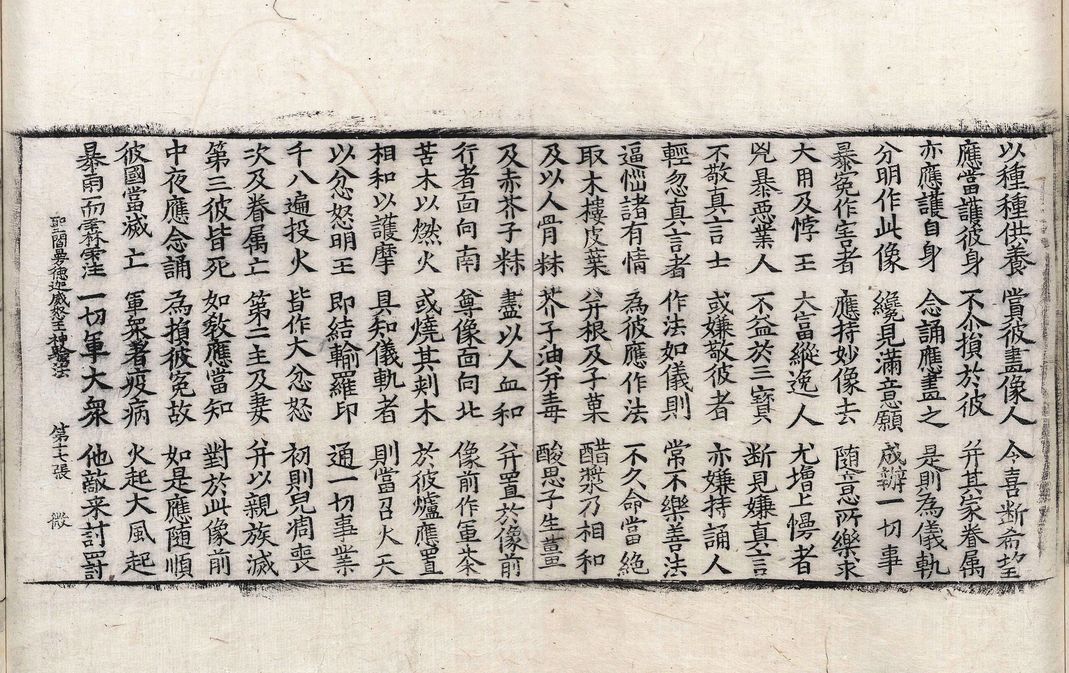 以種種供養 當彼畫像人 令喜断希望
應當護彼身 不令損於彼 并其家眷属
亦應護自身 念誦應畫之 是則為儀軌
分明作此像 纔見滿意願 成辦一切事
暴寃作害者 應持妙像去 随意所樂求
大用及悖王 大富縱逸人 尤增上慢者
兇暴惡業人 不益於三寶 断見嫌真言
不敬真言士 或嫌敬彼者 亦嫌持誦人
輕忽真言者 作法如儀則 常不樂善法
逼惱諸有情 為彼應作法 不久命當絕
取木樓皮葉 并根及子菓 醋漿乃相和
及以人骨粖 芥子油并毒 酸思子生薑
及赤芥子粖 盡以人血和 并置於像前
行者面向南 尊像面向北 像前作軍茶
苦木以燃火 或燒其刾木 於彼爐應置
相和以護摩 具知儀軌者 則當召火天
以忿怒明王 即結輸羅印 通一切事業
千八遍投火 皆作大忿怒 初則兒凋喪
次及眷属亡 第二主及妻 并以親族滅
第三彼皆死 如教應當知 對於此像前
中夜應念誦 為損彼寃故 如是應随順
彼國當滅亡 軍眾者疫病 火起大風起
暴雨而霖注 一切軍大眾 他敵来討罸
聖閻曼德迦威怒王神驗法 第十七張 微